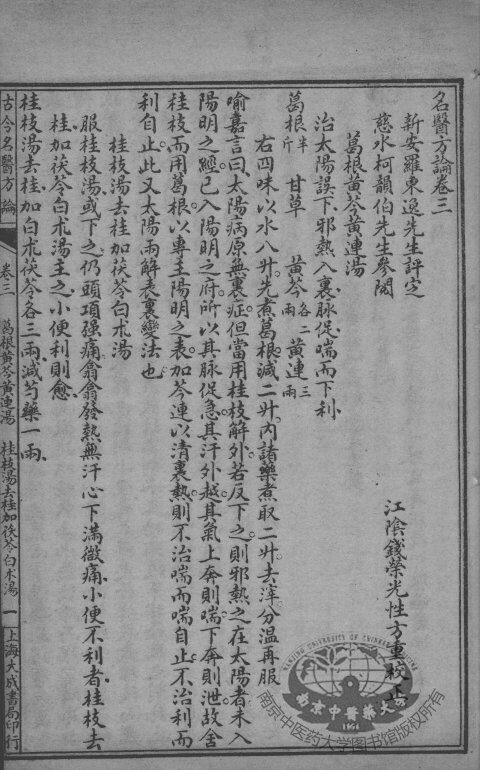 名醫方論卷三
新安羅東逸先生評定
慈水柯韻伯先生參閱
江陰錢榮光性方重校正
葛根黃芩黃連湯
治太陽誤下邪熱入裏脉促喘而下利
葛根半斤 甘草 黃芩各二兩 黃連三兩
右四味以水八升先煮葛根減二升內諸藥煮取二升去滓分温再服
喻嘉言曰太陽病原無裏症但當用桂枝解外若反下之則邪熱之在太陽者未入
陽明之經已入陽明之府所以其脉促急其汗外越其氣上奔則喘下奔則泄故舍
桂枝而用葛根以專主陽明之表加芩連以清裏熱則不治喘而喘自止不治利而
利自止此又太陽兩解表裏變法也
桂枝湯去桂加茯苓白朮湯
服桂枝湯或下之仍頭項强痛翕翕發熱無汗心下滿微痛小便不利者桂枝去
桂加茯苓白朮湯主之小便利則愈
桂枝湯去桂加白朮茯苓各三兩減芍藥一兩
古今名醫方論 卷三 葛根黃芩黃連湯 桂枝湯去桂加茯苓白朮湯 一 上海大成書局印行
NANJING UNIVERSITY OF CHINESE MEDICINE
南京中醫藥大學
1954
南京中医药大学图书馆版权所有